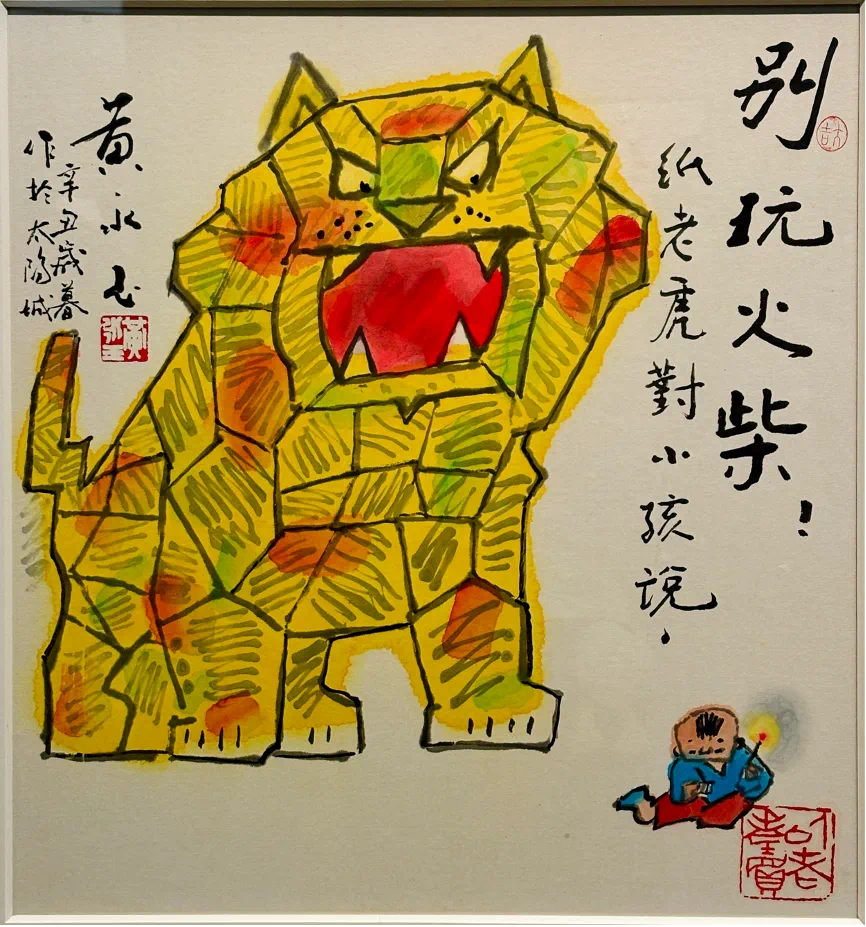 别玩火柴！
紙老虎對小孩説，
黄永玉
辛丑歲暮
作於太陽城